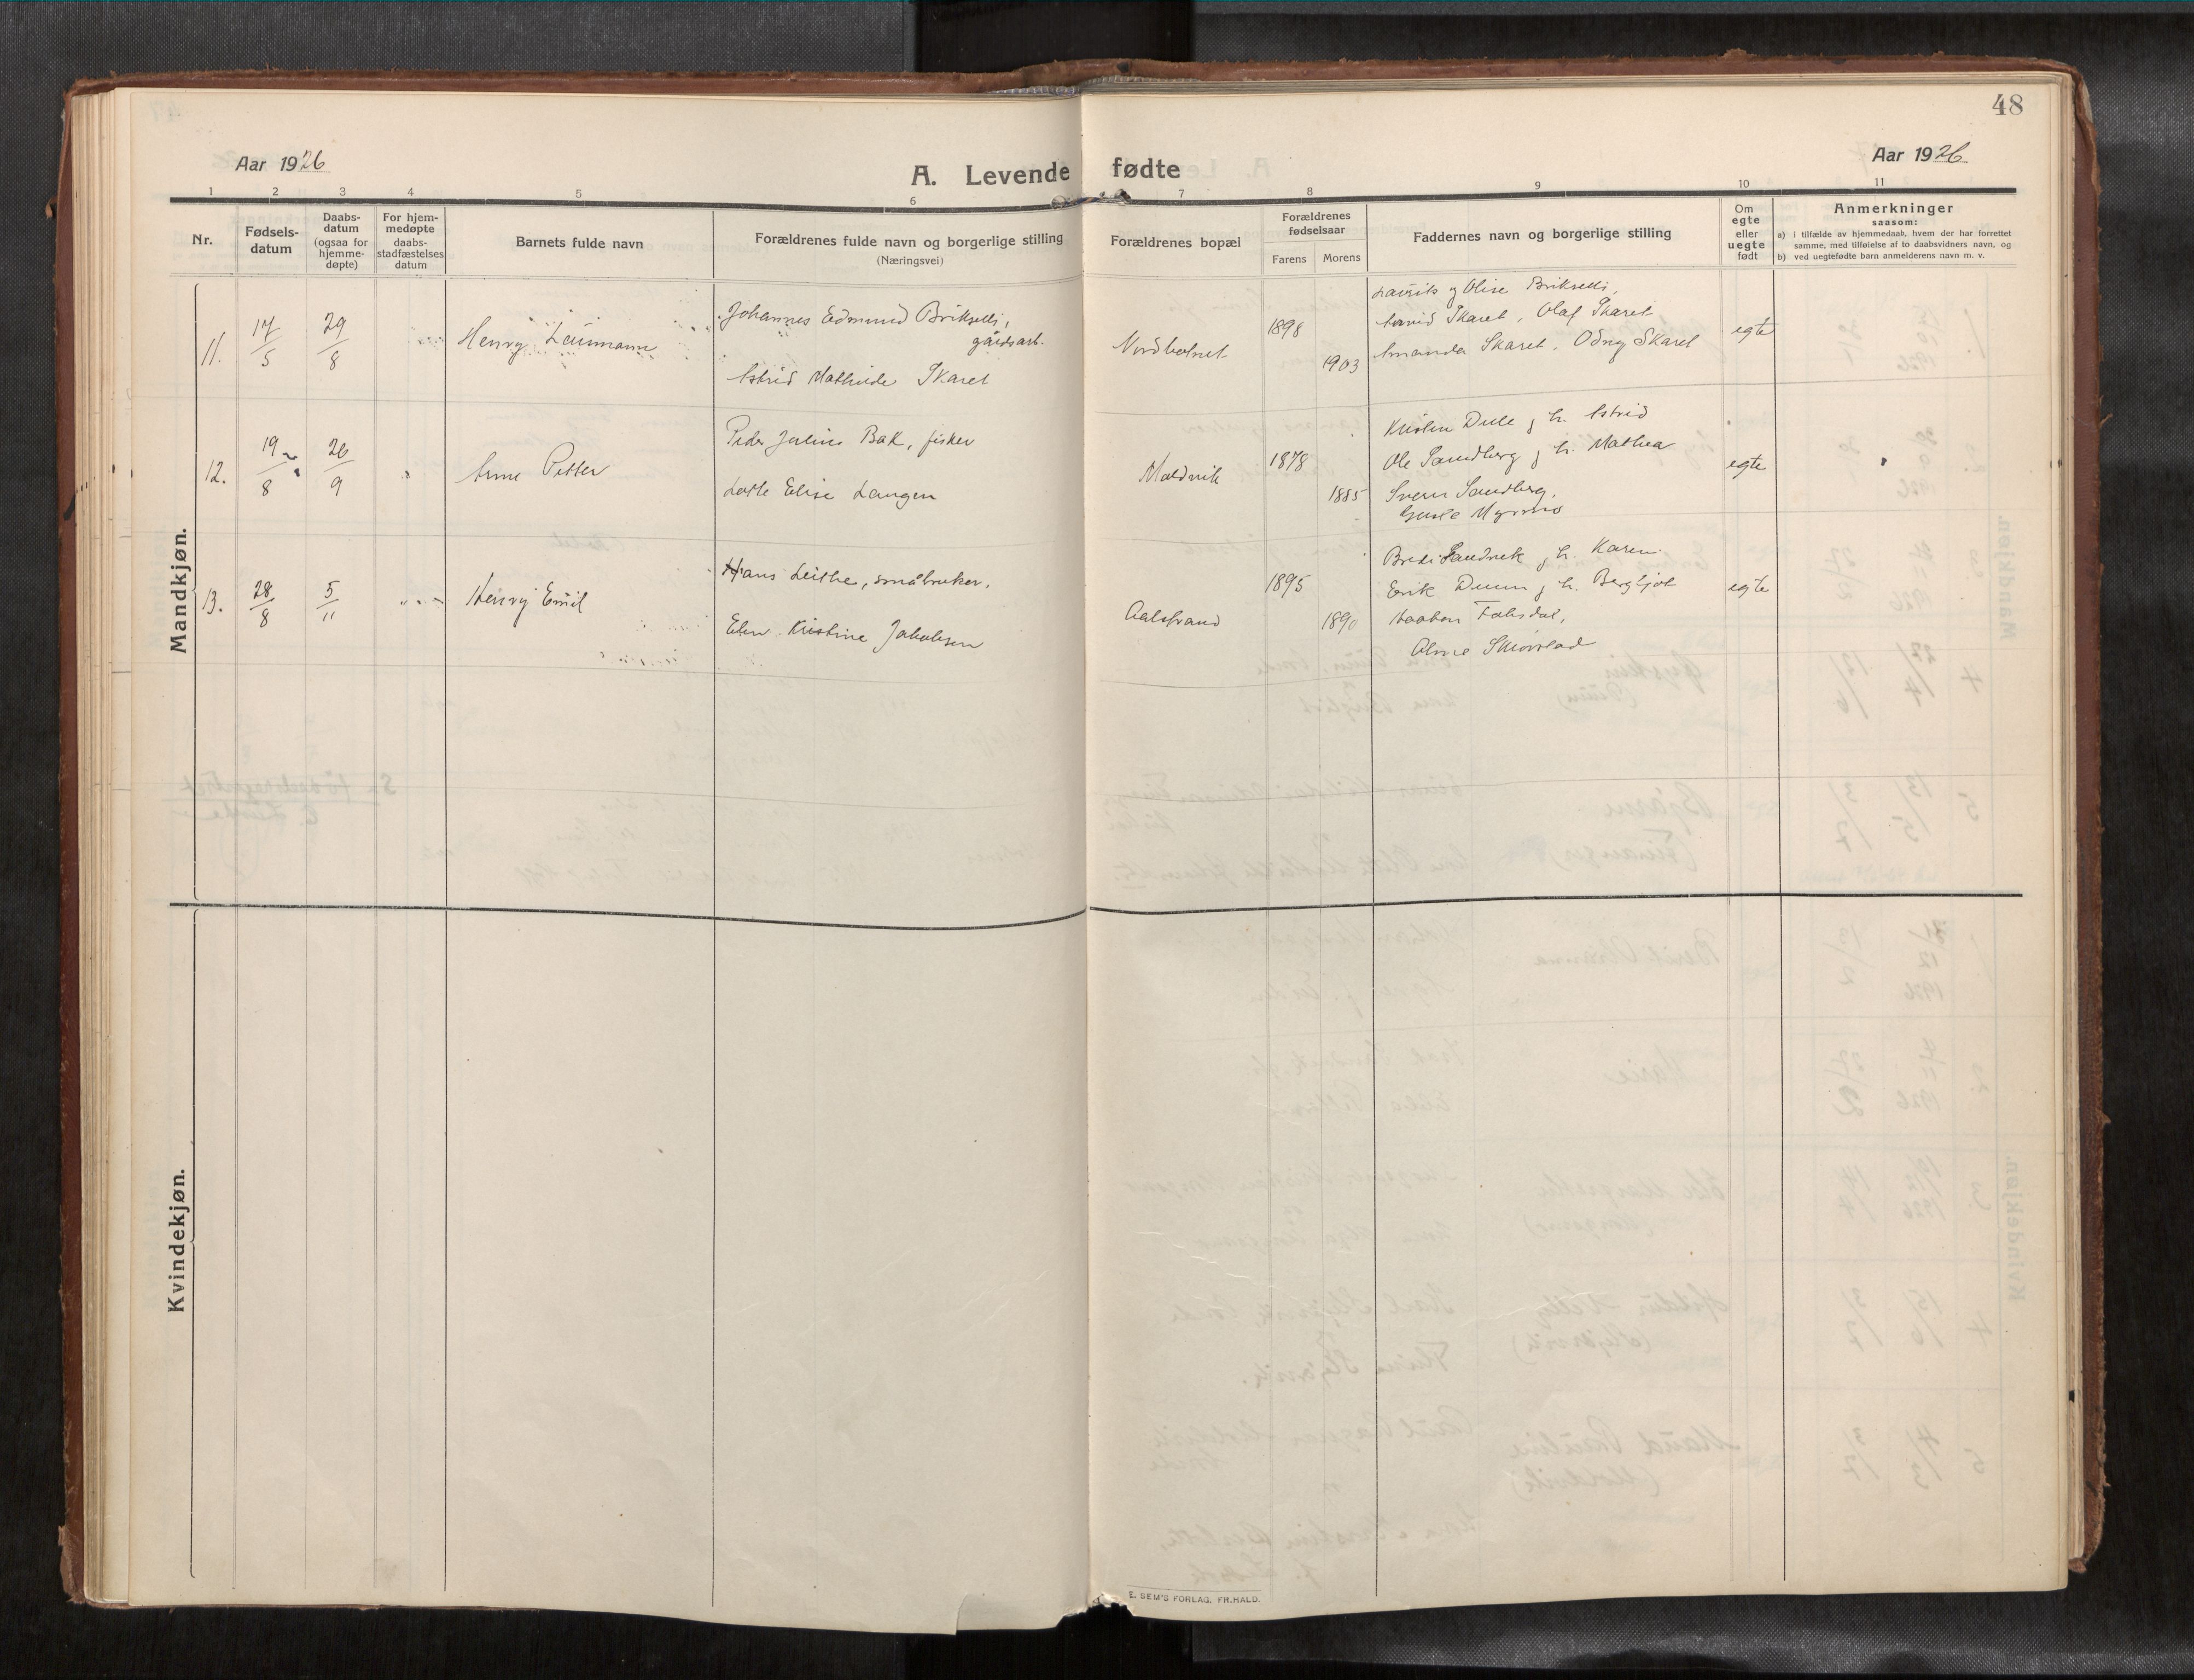 48
Aar 1926
A. Levende fødte
Aar 1926
1 2 3 4 5 6 7 8 9 10 11
Nr.
Fødsels-
datum
Daabs-
datum
(ogsaa for
hjemme-
døpte)
For hjem-
medøpte
daabs-
stadfæstelses
datum
Barnets fulde navn
Forældrenes fulde navn og borgerlige stilling
(Næringsvei)
Forældrenes bopæl
Forældrenes
fødselsaar
Farens
Morens
Faddernes navn og borgerlige stilling
Om
egte
eller
uegte
født
Anmerkninger
saasom:
a) i tilfælde av hjemmedaab, hvem der har forrettet
samme, med tilføielse av to daabsvidners navn, og
b) ved uegtefødte barn anmelderens navn m. v.
Mandkjøn.
11.
17/5
29/8
Henry
Johannes Edmund Brikselli,
gårdsarb.
Astrid Mathilde Skaret
1898
1903
Laurits og Olise Brikselli,
Arvid Skaret, Olaf Skaret
Amanda Skaret, Odny Skaret
egte
12.
19/8
26/9
Arne Petter
Peder Julius Bak, fisker
Lotte Elise Langen
Moldvik
1878
1885
Kristen Dule og h. Astrid
Ole Sandberg og h. Mathea
Sverre Sandberg,
Myrmo
egte
13.
28/8
5/11
Henry Emil
Hans Leithe, småbruker.
Elen Kristine Jakobsen
Aalstrand
1895
1890
Sandvik og h. Karen
Erik Duun og h. Bergljot
Haakon
Alme
egte
Kvindekjøn.
E. SEM'S FORLAG, FR.HALD.